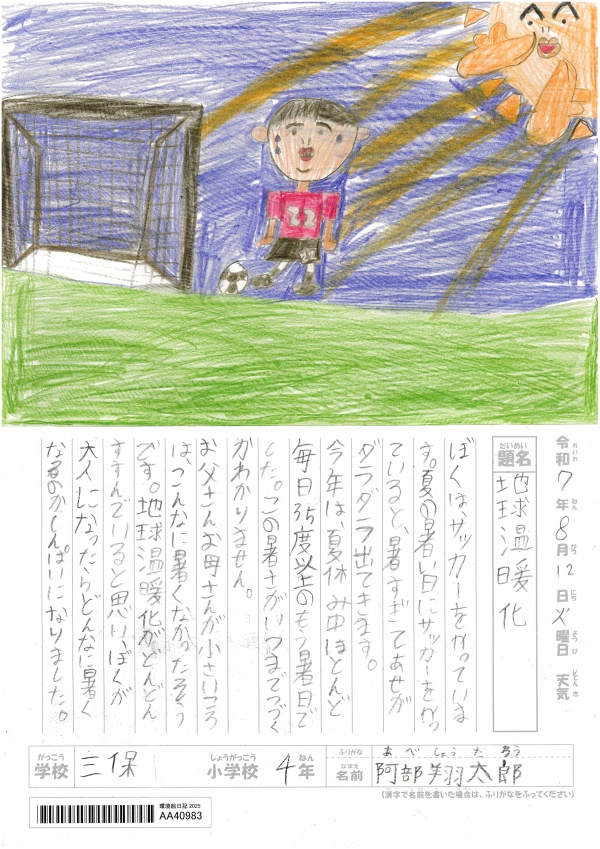 22
令和7年8月12日火曜日 天気
れいわ ねん がつ にち ようび てんき
だいめい
題名 地球温暖化
ぼくは、サッカーをやっていま
す。夏の暑い日にサッカーをやっ
ていると、暑すぎてあせが
ダラダラ出てきます。
今年は、夏休み中ほとんど
毎日35度以上のもう暑日で
した。この暑さがいつまでつづく
かわかりません。
お父さんお母さんが小さいころ
は、こんなに暑くなかったそう
です。地球温暖化がどんどん
すすんでいると思い、ぼくが
大人になったらどんなに暑く
なるのかしんぱいになりました。
がっこう
学校 三保
しょうがっこう ねん
小学校 4年
ふりがな あべ しょうたろう
なまえ
名前 阿部 翔太郎
(漢字で名前を書いた場合は、ふりがなをふってください)
環境絵日記2025
AA40983